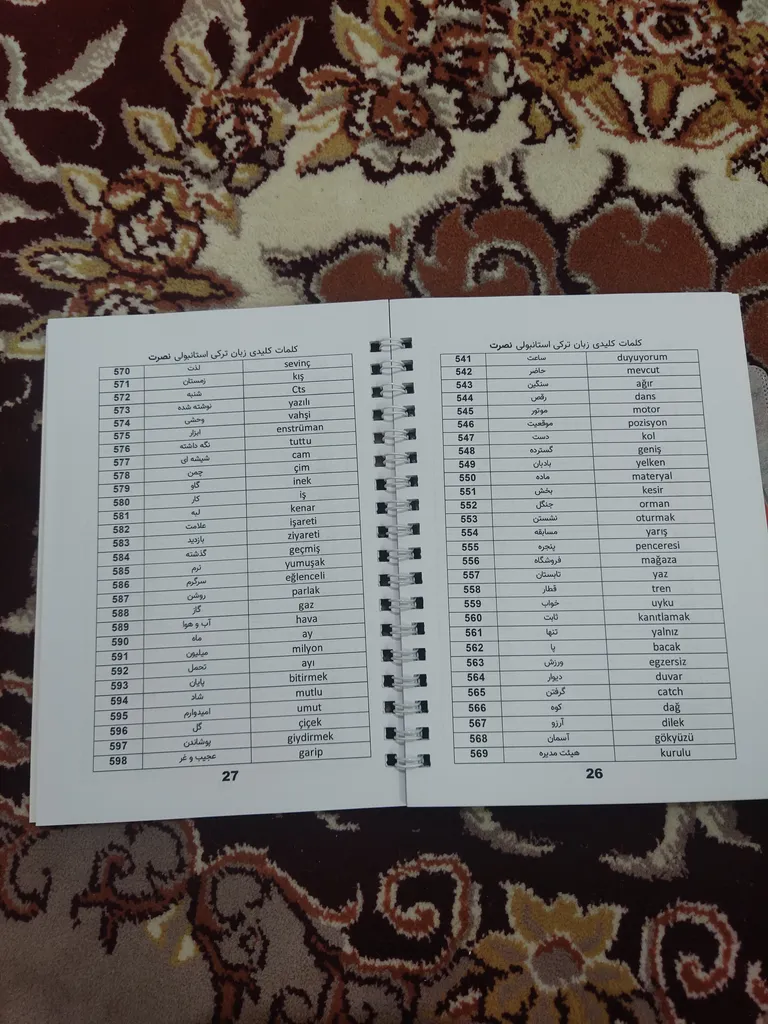 کلمات کلیدی زبان ترکی استانبولی نصرت
541 ساعت duyuyorum
542 حاضر mevcut
543 سنگین ağır
544 رقص dans
545 موتور motor
546 موقعیت pozisyon
547 دست kol
548 گسترده geniş
549 بادبان yelken
550 ماده materyal
551 بخش kesir
552 جنگل orman
553 نشستن oturmak
554 مسابقه yarış
555 پنجره penceresi
556 فروشگاه mağaza
557 تابستان yaz
558 قطار tren
559 خواب uyku
560 ثابت kanıtlamak
561 تنها yalnız
562 پا bacak
563 ورزش egzersiz
564 دیوار duvar
565 گرفتن catch
566 کوه dağ
567 آرزو dilek
568 آسمان gökyüzü
569 هیئت مدیره kurulu
26
کلمات کلیدی زبان ترکی استانبولی نصرت
570 لذت sevinç
571 زمستان kış
572 شنبه Cts
573 نوشته شده yazılı
574 وحشی vahşi
575 ابزار enstrüman
576 نگه داشته tuttu
577 شیشه ای cam
578 چمن çim
579 گاو inek
580 کار iş
581 لبه kenar
582 علامت işareti
583 بازدید ziyareti
584 گذشته geçmiş
585 نرم yumuşak
586 سرگرم eğlenceli
587 روشن parlak
588 گاز gaz
589 آب و هوا hava
590 ماه ay
591 میلیون milyon
592 تحمل ayı
593 پایان bitirmek
594 شاد mutlu
595 امیدوارم umut
596 گل çiçek
597 پوشاندن giydirmek
598 عجیب و غر garip
27